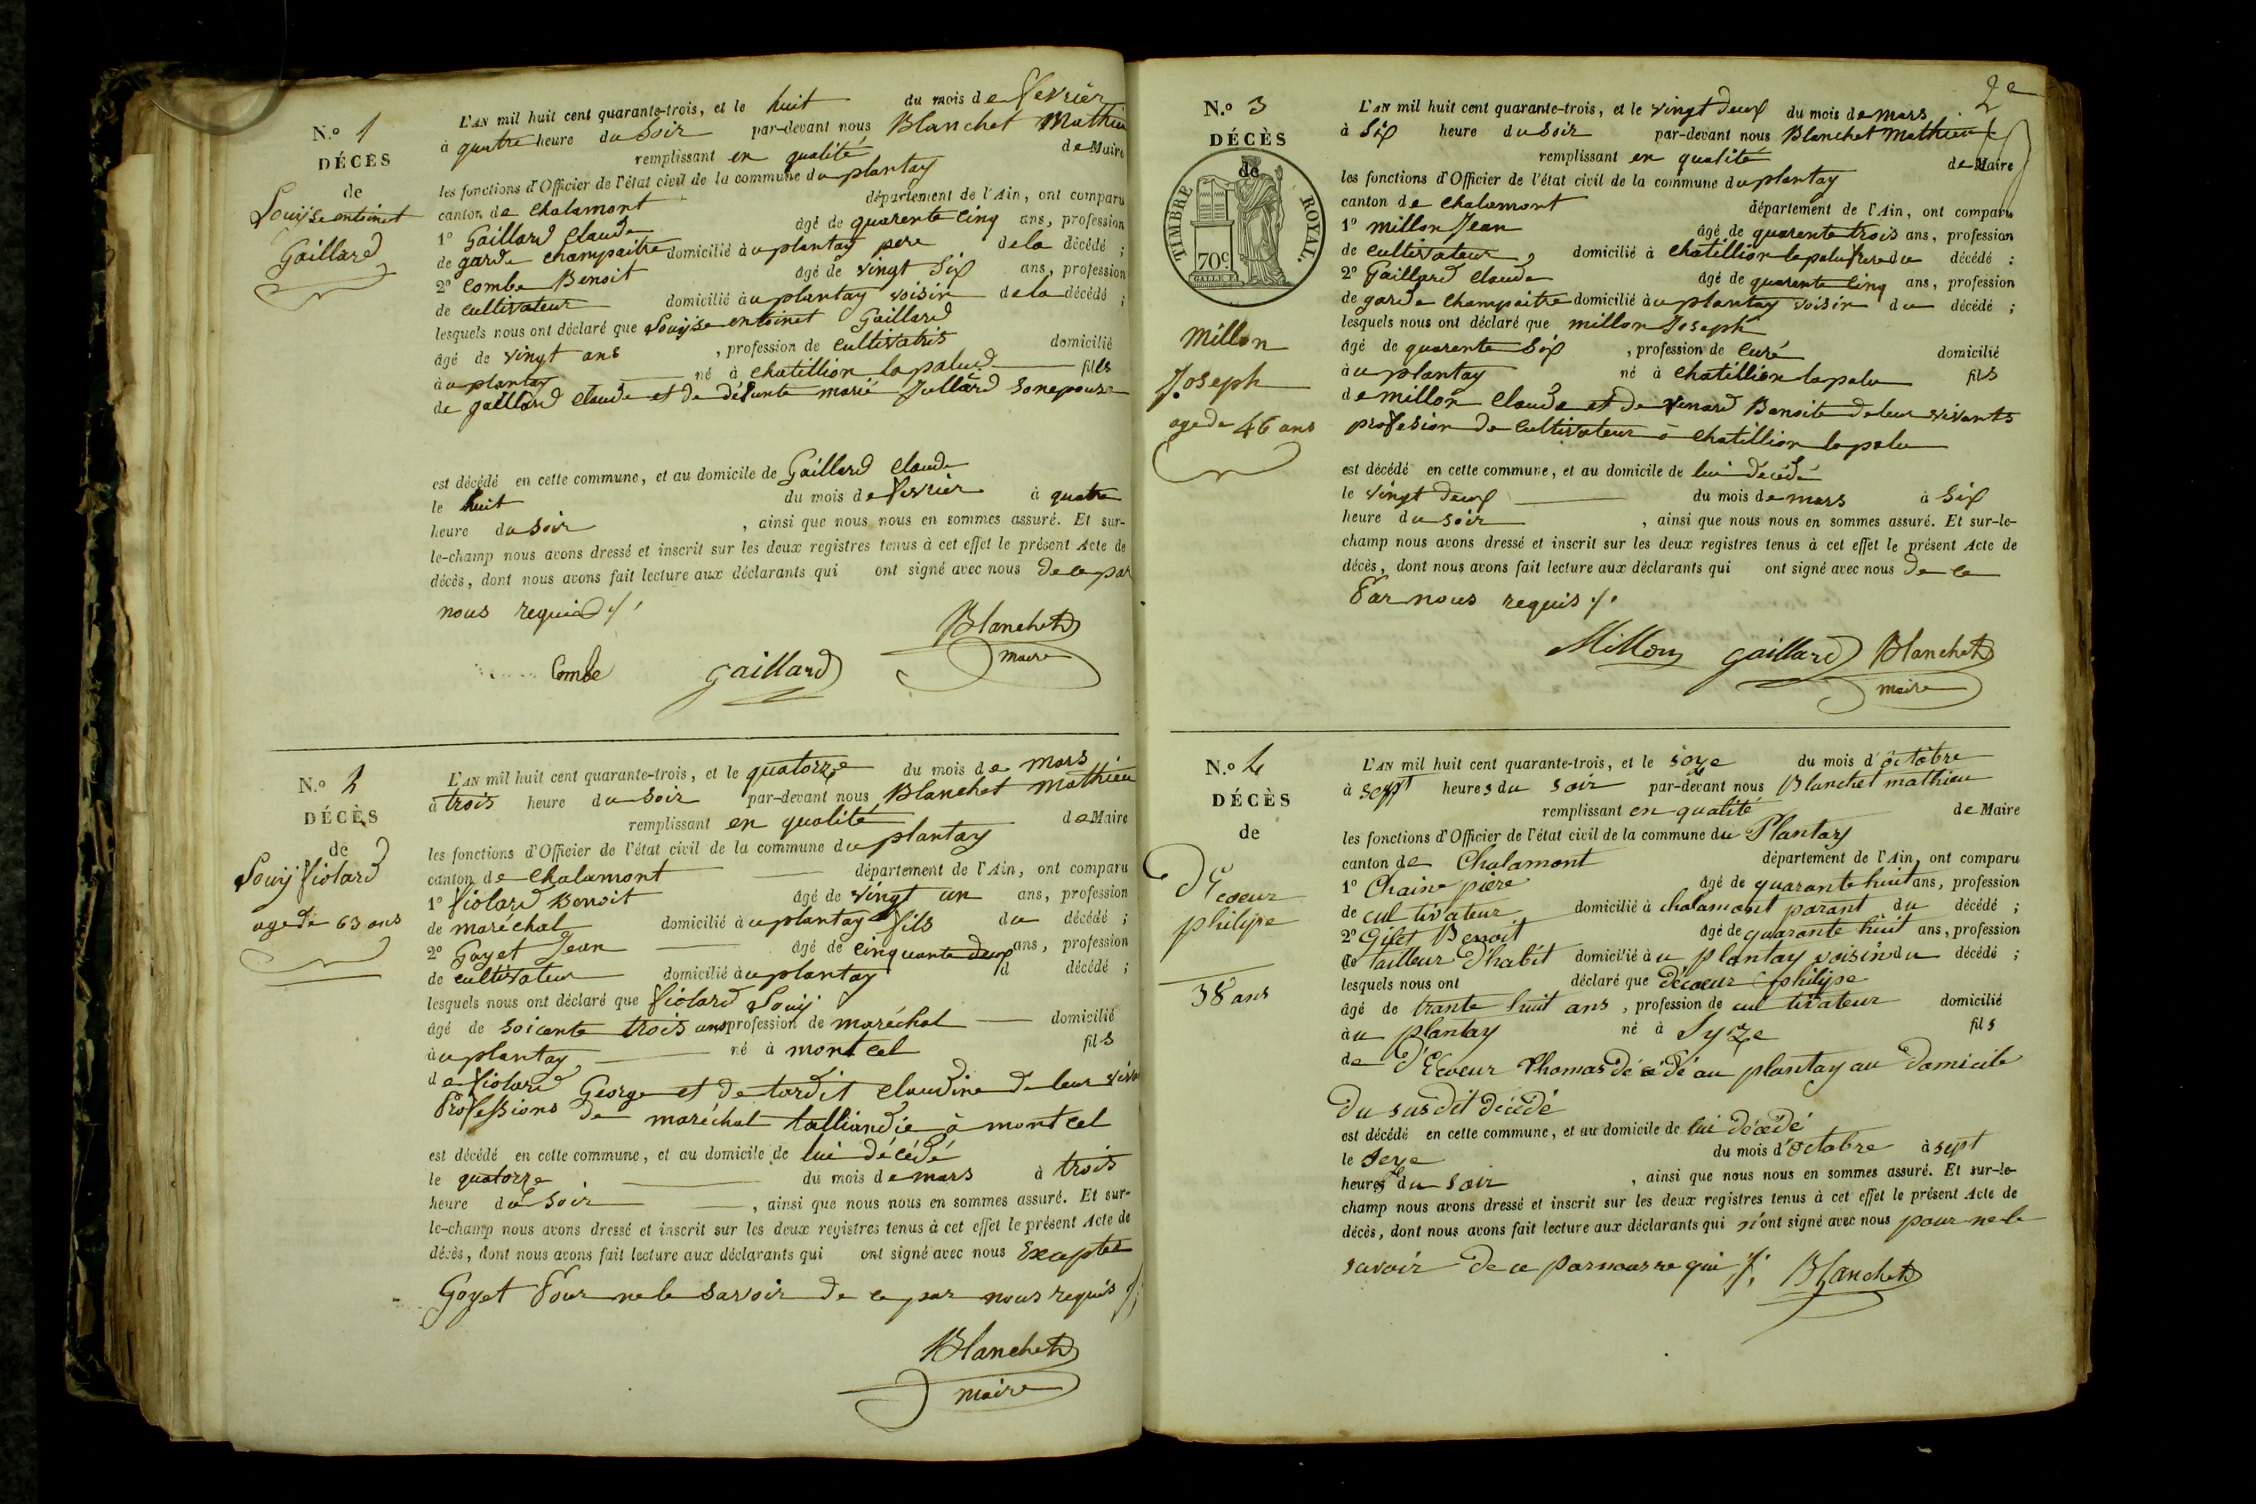 N.o 1
DÉCÈS
de
Louise entoinet
Gaillard
L'AN mil huit cent quarante-trois, et le huit du mois de fevrier
à quatre heure du Soir par-devant nous Blanchet Mathieu
remplissant en qualité de Maire
les fonctions d'Officier de l'état civil de la commune du plantay
canton de Chalamont département de l'Ain, ont comparu
1o Gaillard Claude âgé de quarente Cinq ans, profession
de garde Champaitre domicilié à u plantay pere de la décédé ;
2o Combe Benoit âgé de vingt Six ans, profession
de Cultivateur domicilié à u plantay voisin de la décédé ;
lesquels nous ont déclaré que Louise entoinet Gaillard
âgé de vingt ans , profession de Cultivatris domicilié
à u plantay né à Chatillion la palud fills
de gaillard Claude et de défunte marié Jullard Son epouse
est décédé en cette commune, et au domicile de Gaillard Claude
le huit du mois de fevrier à quatre
heure du Soir , ainsi que nous nous en sommes assuré. Et sur-
le-champ nous avons dressé et inscrit sur les deux registres tenus à cet effet le présent Acte de
décès, dont nous avons fait lecture aux déclarants qui ont signé avec nous de ce par
nous requid ./.
Combe Gaillard Blanchet
maire
N.o 2
DÉCÈS
de
Louij fiolard
age de 63 ans
L'AN mil huit cent quarante-trois, et le quatorze du mois de mars
à trois heure du Soir par-devant nous Blanchet Mathieu
remplissant en qualité de Maire
les fonctions d'Officier de l'état civil de la commune du plantay
canton de Chalamont département de l'Ain, ont comparu
1o fiolard Benoit âgé de vingt un ans, profession
de maréchal domicilié à u plantay fils du décédé ;
2o Goyet Jean âgé de Cinquante deux ans, profession
de Cultivateur domicilié à u plantay d décédé ;
lesquels nous ont déclaré que fiolard Louij
âgé de soicente trois ans profession de maréchal domicilié
à u plantay né à montcel fils
de fiolard George et de tardit Claudine de leur
Professions de maréchal talliandie à montcel
est décédé en cette commune, et au domicile de lui décédé
le quatorze du mois de mars à trois
heure du Soir , ainsi que nous nous en sommes assuré. Et sur-
le-champ nous avons dressé et inscrit sur les deux registres tenus à cet effet le présent Acte de
décès, dont nous avons fait lecture aux déclarants qui ont signé avec nous Excepter
Goyet Pour ne le Savoir de ce par nous requis ./.
Blanchet
maire
2e
N.o 3
DÉCÈS
de
TIMBRE ROYAL.
70c.
Millon
Joseph
age de 46 ans
L'AN mil huit cent quarante-trois, et le vingt deux du mois de mars
à Six heure du Soir par-devant nous Blanchet Mathieu
remplissant en qualité de Maire
les fonctions d'Officier de l'état civil de la commune du plantay
canton de Chalamont département de l'Ain, ont comparu
1o millon Jean âgé de quarente trois ans, profession
de Cultivateur, domicilié à Chatillion la palu frere du décédé :
2o Gaillard Claude âgé de quarente Cinq ans, profession
de garde Champaitre domicilié à u plantay voisin du décédé ;
lesquels nous ont déclaré que millon Joseph
âgé de quarente Six , profession de Curé domicilié
à u plantay né à Chatillion la palu fils
de millon Claude et de venard Benoite de leur vivants
profesion de Cultivateur à Chatillion la palu
est décédé en cette commune, et au domicile de lui décédé
le vingt deux du mois de mars à Six
heure du Soir , ainsi que nous nous en sommes assuré. Et sur-le-
champ nous avons dressé et inscrit sur les deux registres tenus à cet effet le présent Acte de
décès, dont nous avons fait lecture aux déclarants qui ont signé avec nous de ce
Par nous requis ./.
Millon gaillard Blanchet
maire
N.o 4
DÉCÈS
de
d'Ecoeur
philipe
38 ans
L'AN mil huit cent quarante-trois, et le soze du mois d'octobre
à sept heures du Soir par-devant nous Blanchet mathieu
remplissant en qualité de Maire
les fonctions d'Officier de l'état civil de la commune du Plantay
canton de Chalamont département de l'Ain, ont comparu
1o Chaine piere âgé de quarante huit ans, profession
de cul tivateur domicilié à chalamont parant du décédé ;
2o Gilet Benoit âgé de quarante huit ans, profession
de tailleur D'habit domicilié à u plantay voisin du décédé ;
lesquels nous ont déclaré que Décoeur philipe
âgé de trante huit ans , profession de cul tivateur domicilié
à u plantay né à Syze fils
de D'Ecoeur Thomas décédé au plantay au Domicile
Du sus dit Décédé
est décédé en cette commune, et au domicile de lui décédé
le seze du mois d'octobre à sept
heures du Soir , ainsi que nous nous en sommes assuré. Et sur-le-
champ nous avons dressé et inscrit sur les deux registres tenus à cet effet le présent Acte de
décès, dont nous avons fait lecture aux déclarants qui n'ont signé avec nous pour ne le
savoir De ce par nous re qui ./. Blanchet